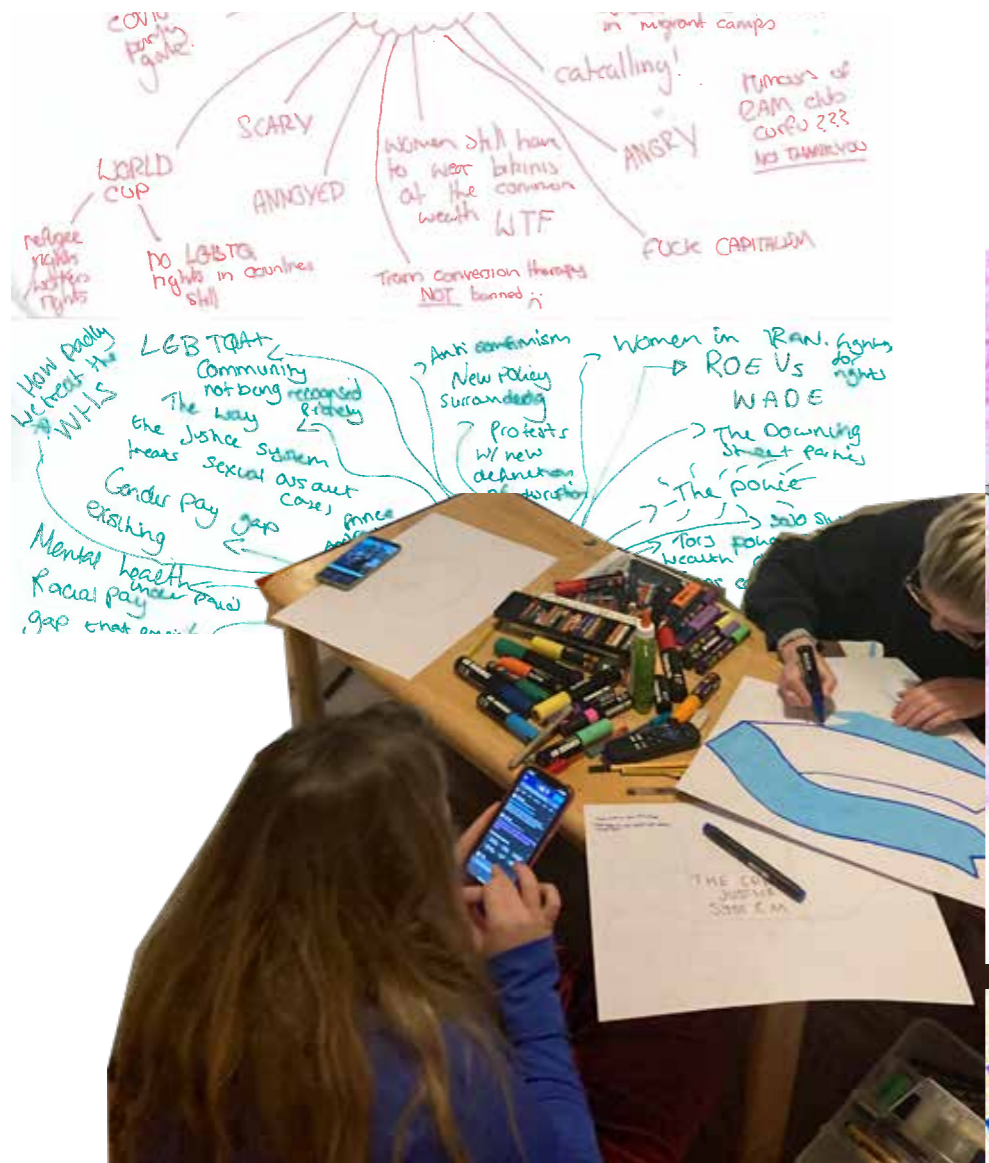 COVID
party
gate.
in migrant camps
catcalling!
rumours of
2AM club
curfu ???
NO THANKYOU
SCARY
ANGRY
Women still have
to wear bikinis
at the common
wealth WTF
WORLD
CUP
ANNOYED
FUCK CAPITALISM
refugee
rights
workers
rights
no LGBTQ
rights in countries
still
Trans conversion therapy
NOT banned
How badly
we treat the
NHS
LGBTQA+
Community
not being recognised
The way
the Justice system
treats sexual assault
cases
Gender pay gap
existing
Mental health
under paid
Racial pay
gap that
Anti
New policy
Surrounding
Protests
w/ new
definition
of disruption
Women in IRAN. fighting
for
rights
ROE Vs
WADE
The Downing
Street parties
The police
Tory
wealth
THE
JUSTICE
SYSTEM